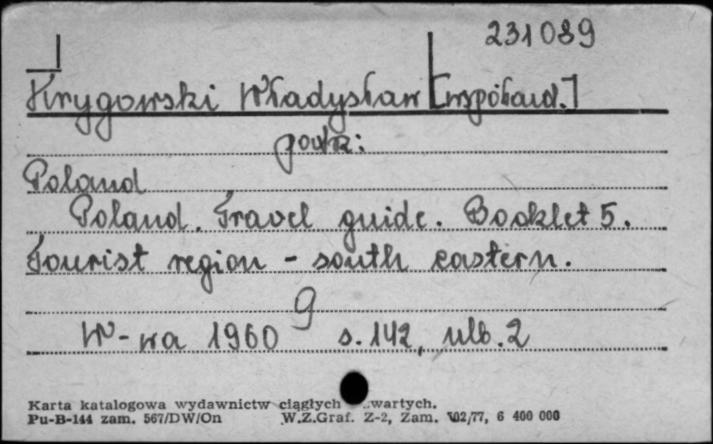 231089
Krygowski Władysław [współaut.]
patrz:
Poland
Poland. Travel guide. Booklet 5.
Tourist region - south eastern.
9
W-wa 1960 s. 142, nlb. 2
Karta katalogowa wydawnictw ciągłych wartych.
Pu-B-144 zam. 567/DW/On W.Z.Graf. Z-2, Zam. 102/77, 6 400 000